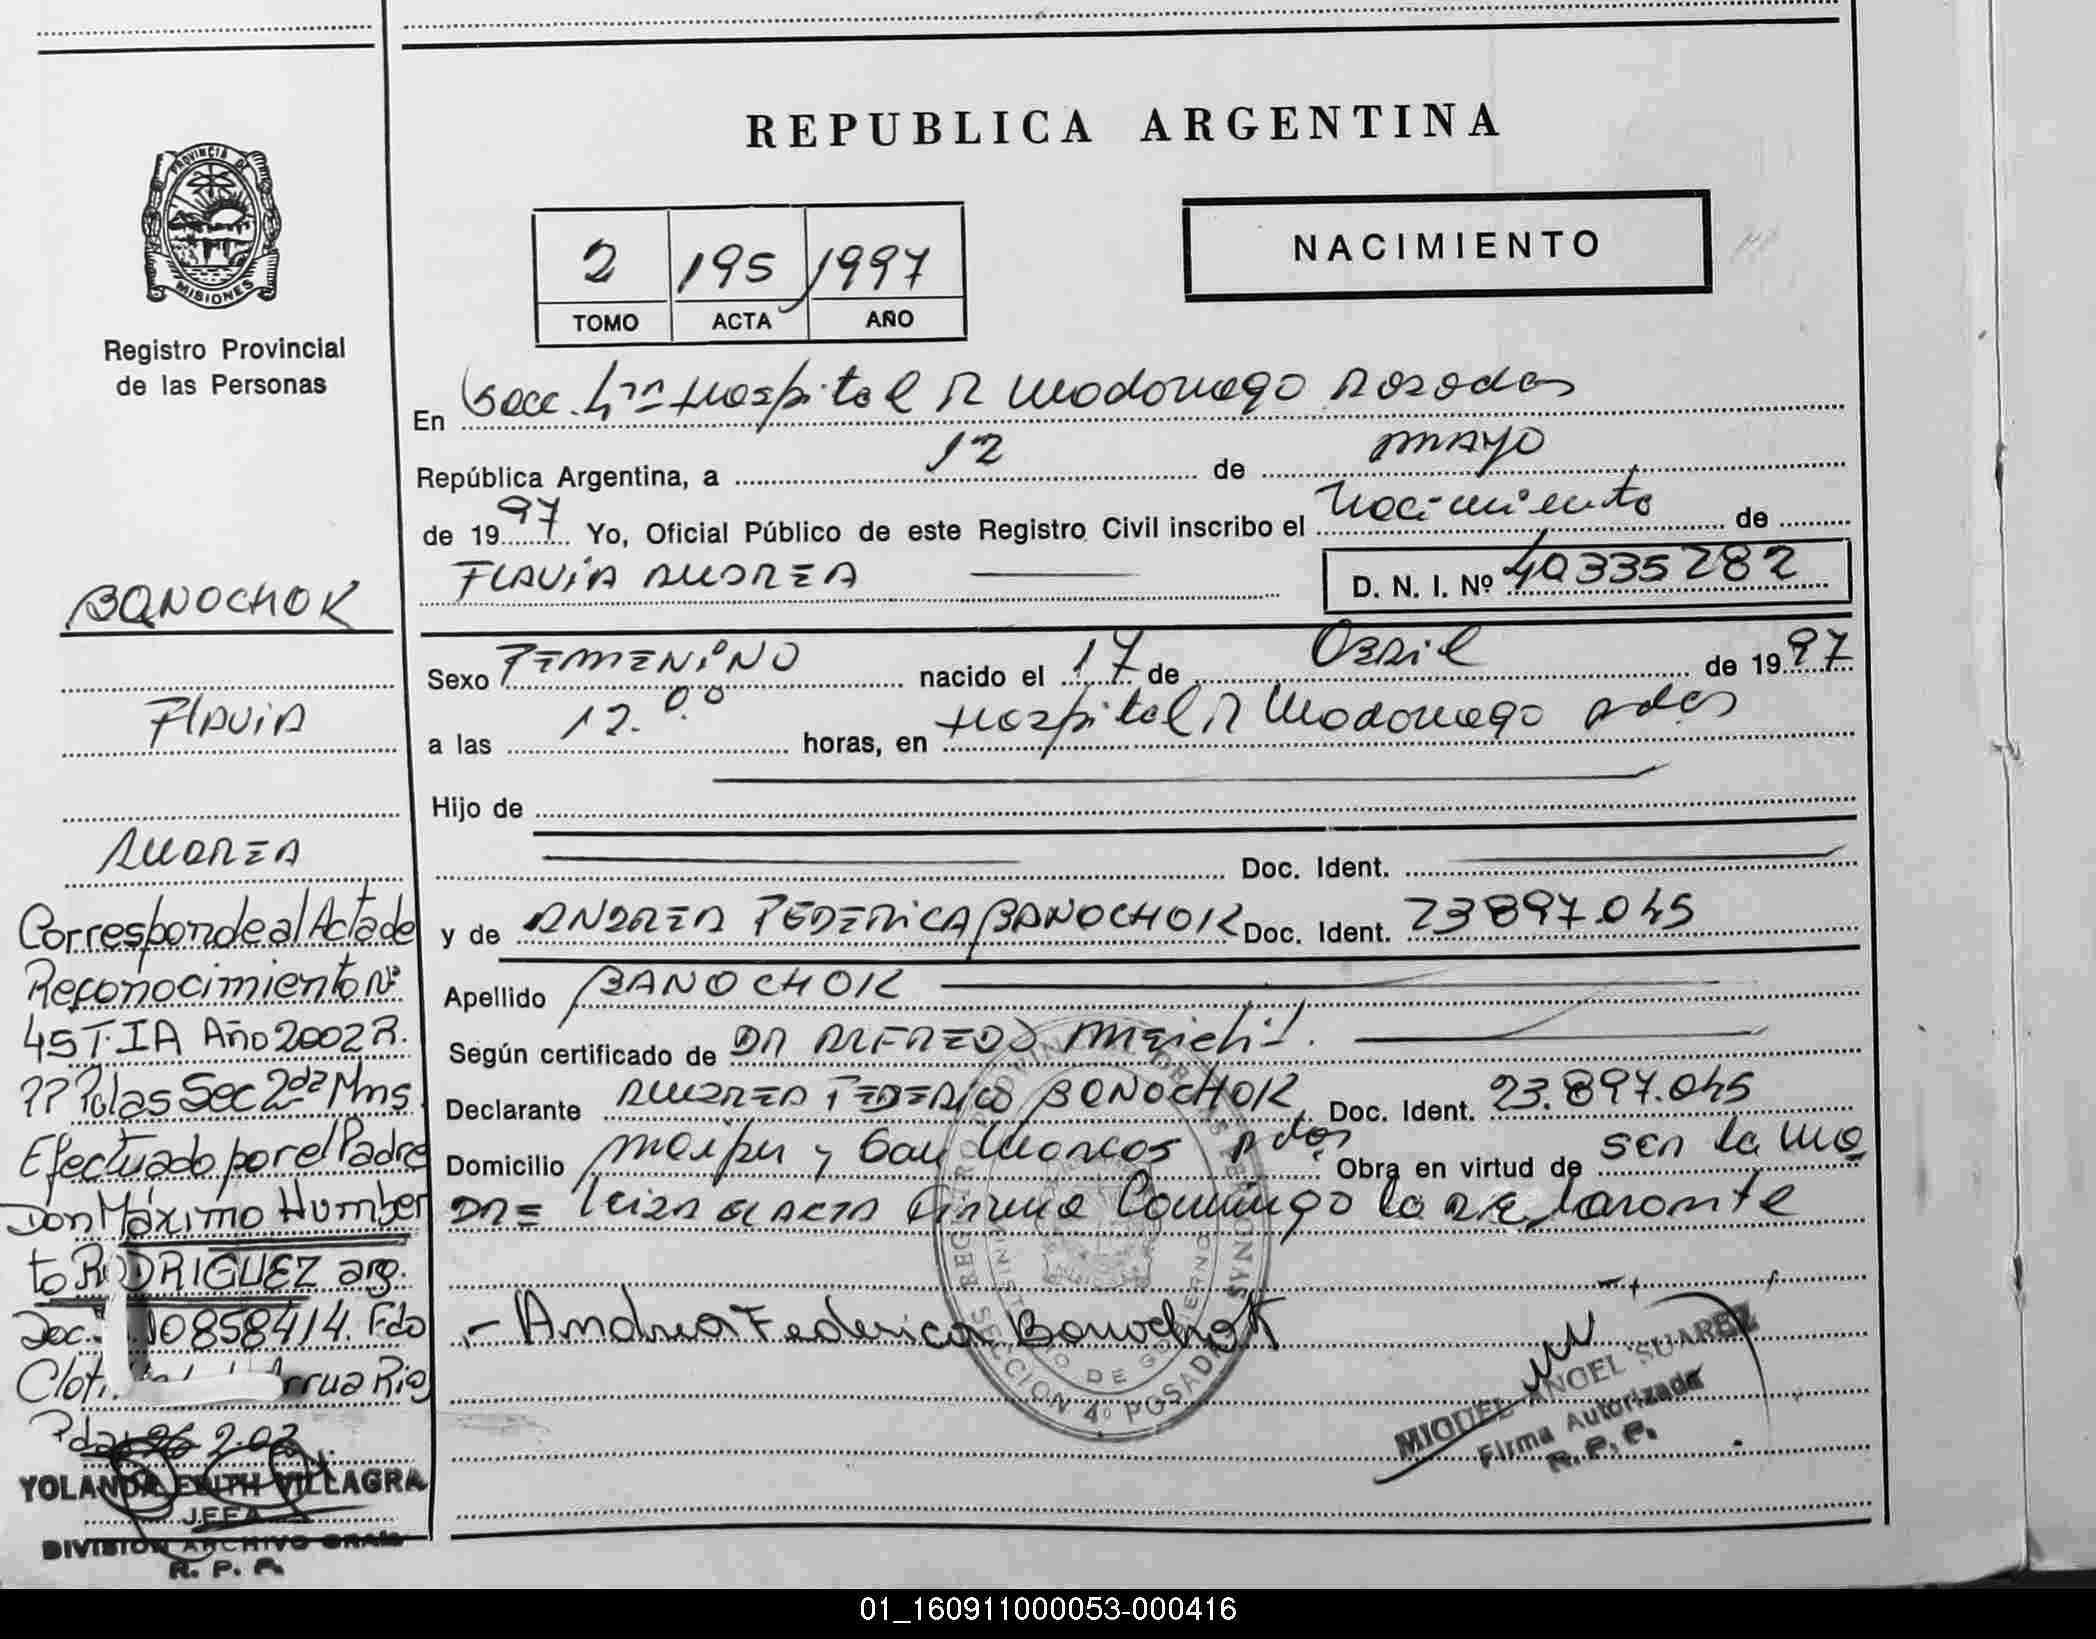 REPUBLICA ARGENTINA
PROVINCIA DE
MISIONES
Registro Provincial
de las Personas
2 195 1997
TOMO ACTA AÑO
NACIMIENTO
En Secc. 4ta Hospital R Madariaga Posadas
República Argentina, a 12 de mayo
de 1997 Yo, Oficial Público de este Registro Civil inscribo el Nacimiento de
FLAVIA ANDREA D. N. I. Nº 40335282
Sexo FEMENINO nacido el 17 de Abril de 1997
a las 12.00 horas, en Hospital R Madariaga Pdas
Hijo de
Doc. Ident.
y de ANDREA FEDERICA BANOCHOK Doc. Ident. 23897.045
Apellido BANOCHOK
Según certificado de DR ALFREDO
Declarante ANDREA FEDERICA BANOCHOK Doc. Ident. 23.897.045
Domicilio Maipu y San Marcos Pdas Obra en virtud de ser la ma
DRE leida el ACTA Firma Conmigo la declarante
- Andrea Federica Banochok
SECCION 4º POSADAS
MIGUEL ANGEL SUAREZ
Firma Autorizada
R. P. P.
BANOCHOK
FLAVIA
ANDREA
Corresponde al Acta de
Reconocimiento Nº
45 T. IA Año 2002 R.
PP Pdas Sec 2da Mns.
Efectuado por el Padre
Don Máximo Humber
to RODRIGUEZ arg.
Doc. 10858414. Fdo
Pdas 26 2.02
YOLANDA EDITH VILLAGRA
JEFA
DIVISION ARCHIVO GRAL
R. P. P.
01_160911000053-000416